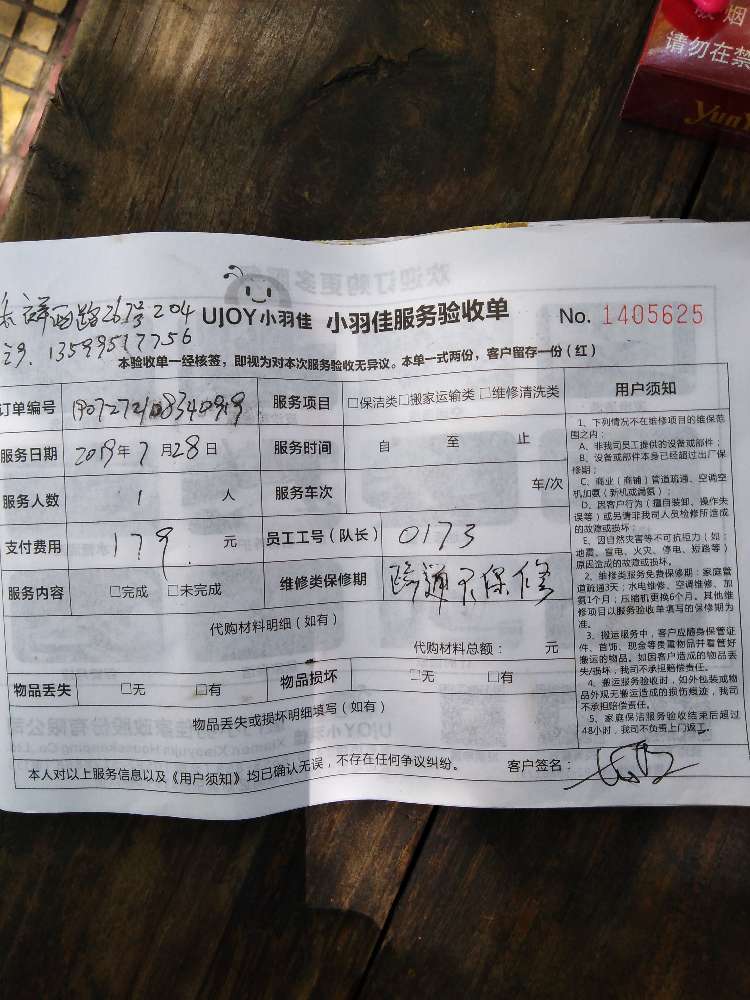 烟
请勿在禁
祥西路26号204
13599517756
UJOY小羽佳 小羽佳服务验收单 No. 1405625
本验收单一经核签，即视为对本次服务验收无异议。本单一式两份，客户留存一份（红）
订单编号 服务项目 □保洁类□搬家运输类 □维修清洗类
服务日期 2019年7月28日 服务时间 自 至 止
服务人数 1 人 服务车次 车/次
支付费用 179 元 员工工号（队长） 0173
服务内容 □完成 □未完成 维修类保修期 不保修
代购材料明细（如有）
代购材料总额： 元
物品丢失 □无 □有 物品损坏 □无 □有
物品丢失或损坏明细填写（如有）
本人对以上服务信息以及《用户须知》均已确认无误，不存在任何争议纠纷。 客户签名：
用户须知
1、下列情况不在维修项目的维保范
围之内：
A、非我司员工提供的设备或部件；
B、设备或部件本身已经超过出厂保
修期；
C、商业（商铺）管道疏通、空调空
机加氨（新机或漏氨）；
D、因客户行为（擅自装卸、操作失
误等）或另请非我司人员检修所造成
的故障或损坏；
E、因自然灾害等不可抗拒力（如：
地震、雷电、火灾、停电、短路等）
原因造成的故障或损坏。
2、维修类服务免费保修期：家庭管
道疏通3天；水电维修、空调维修、加
氨1个月；压缩机更换6个月。其他维
修项目以服务验收单填写的保修期为
准。
3、搬运服务中，客户应随身保管证
件、首饰、现金等贵重物品并看管好
搬运的物品。如因客户造成的物品丢
失/损坏，我司不承担赔偿责任。
4、搬运服务验收时，如外包装或物
品外观无搬运造成的损伤痕迹，我司
不承担赔偿责任。
5、家庭保洁服务验收结束后超过
48小时，我司不负责上门返工。